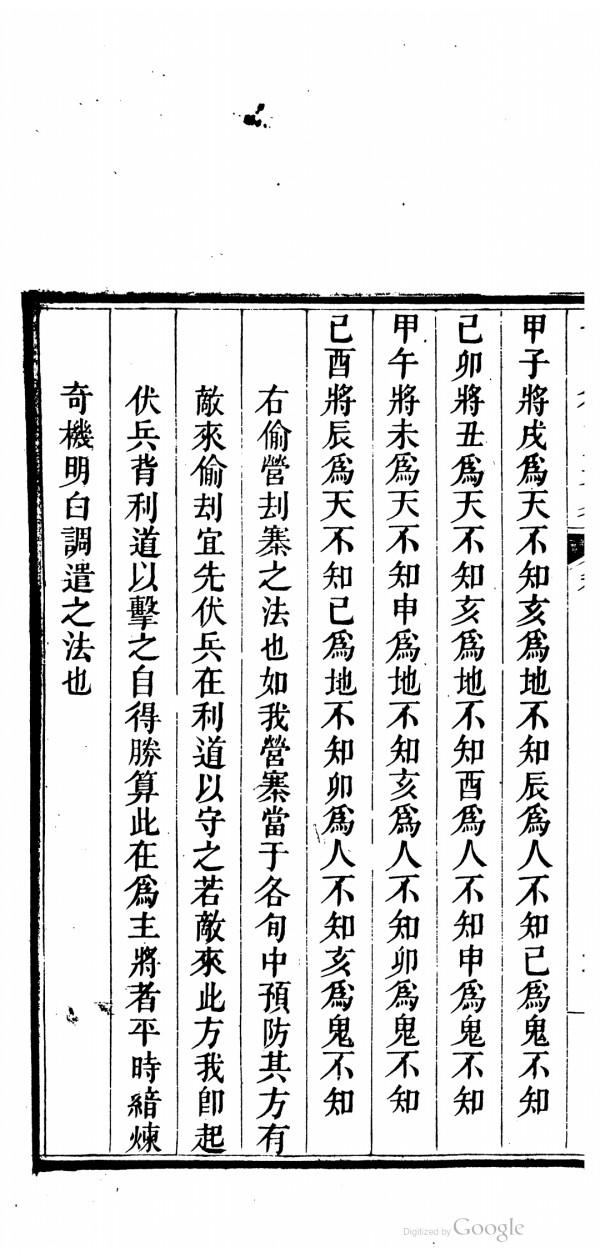 甲子將戌爲天不知亥爲地不知辰爲人不知已爲鬼不知
己卯將丑爲天不知亥爲地不知酉爲人不知申爲鬼不知
甲午將未爲天不知申爲地不知亥爲人不知卯爲鬼不知
己酉將辰爲天不知已爲地不知卯爲人不知亥爲鬼不知
右偷營刦寨之法也如我營寨當于各旬中預防其方有
敵來偷刦宜先伏兵在利道以守之若敵來此方我卽起
伏兵背利道以擊之自得勝算此在爲主將者平時縖煉
奇機明白調遣之法也
Digitized by Google